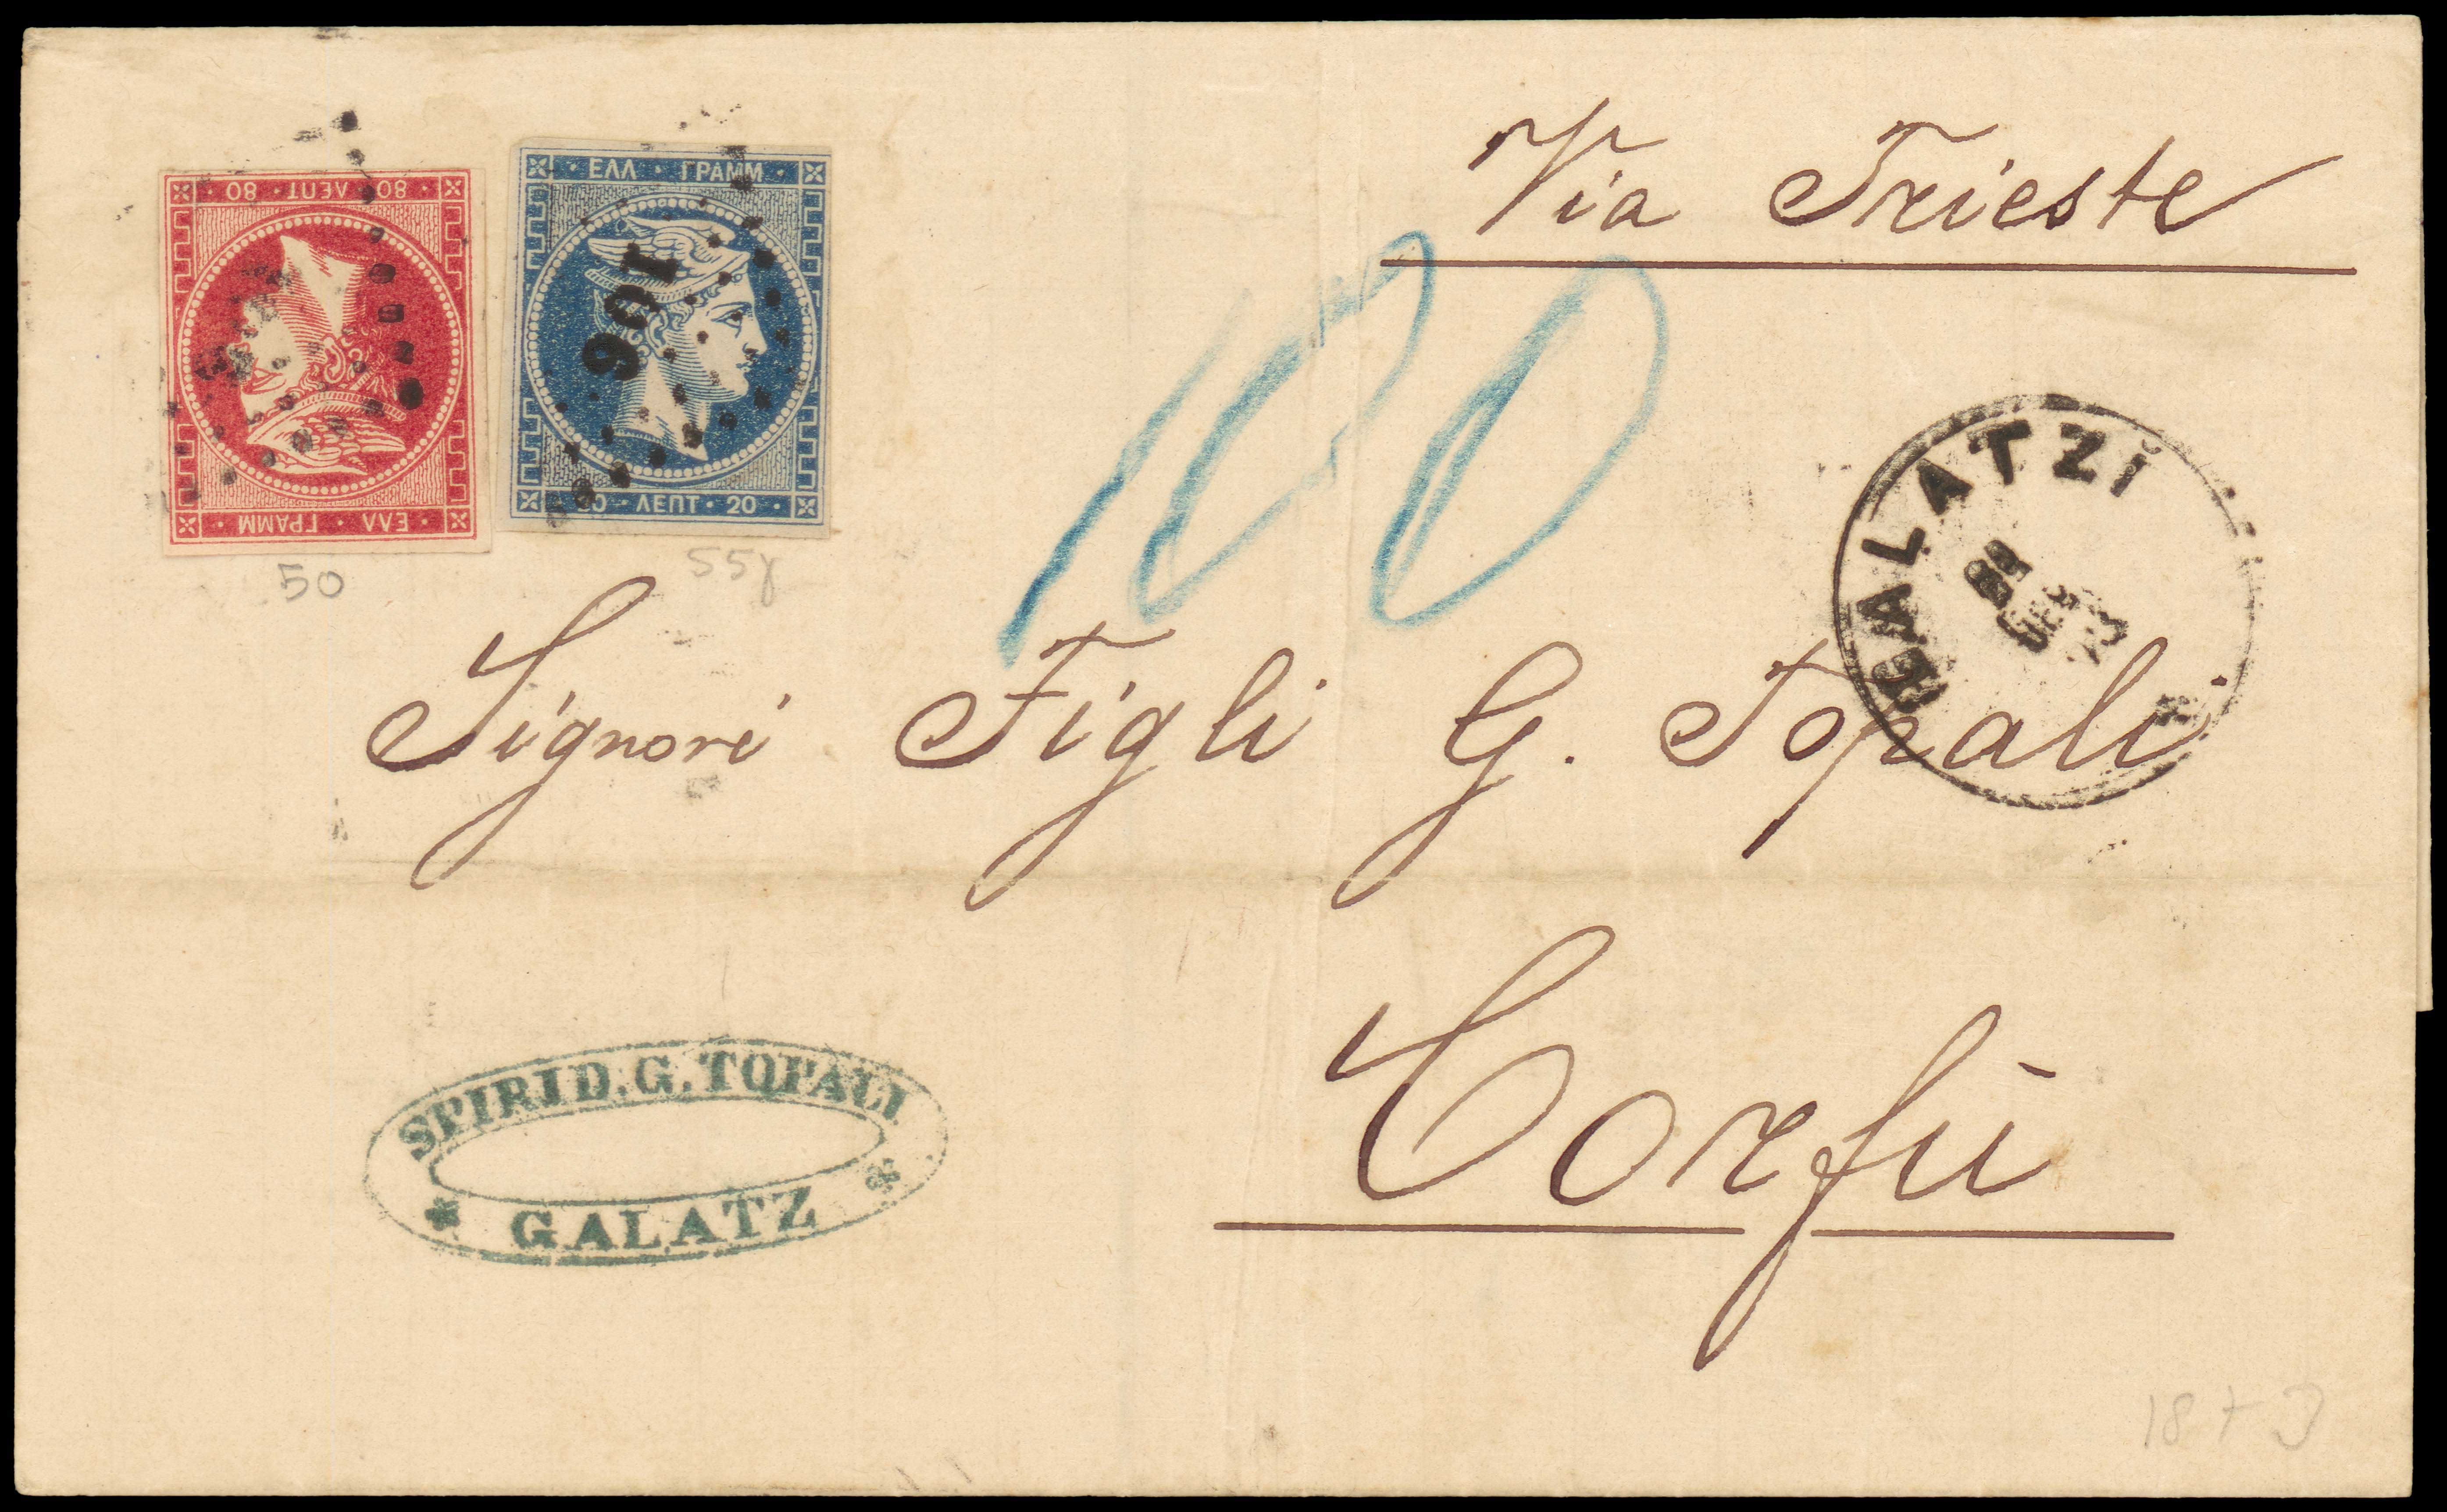 Via Trieste
80 · ΛΕΠΤ · 80
ΕΛΛ · ΓΡΑΜΜ
ΕΛΛ · ΓΡΑΜΜ
106
20 · ΛΕΠΤ · 20
50
55γ
100
GALATZI
Signori Figli G. Topali
Corfù
SPIRID. G. TOPALI
GALATZ